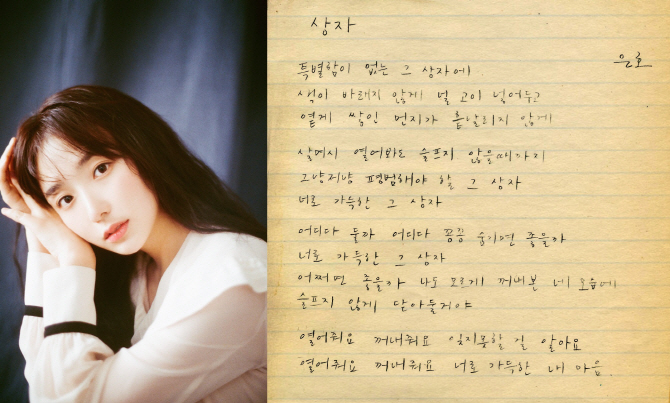 상자
은호
특별함이 없는 그 상자에
색이 바래지 않게 널 고이 넣어두고
옅게 쌓인 먼지가 흩날리지 않게
살며시 열어봐도 슬프지 않을때까지
그냥저냥 평범해야 할 그 상자
너로 가득한 그 상자
어디다 둘까 어디다 꽁꽁 숨기면 좋을까
너로 가득한 그 상자
어쩌면 좋을까 나도 모르게 꺼내본 네 모습에
슬프지 않게 닫아둘거야
열어줘요 꺼내줘요 잊지못할 걸 알아요
열어줘요 꺼내줘요 너로 가득한 내 마음